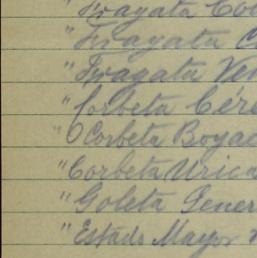 " Fragata Co
" Fragata C
" Fragata Ven
" Corbeta Cére
" Corbeta Boyac
" Corbeta Urica
" Goleta Gener
" Estado Mayor